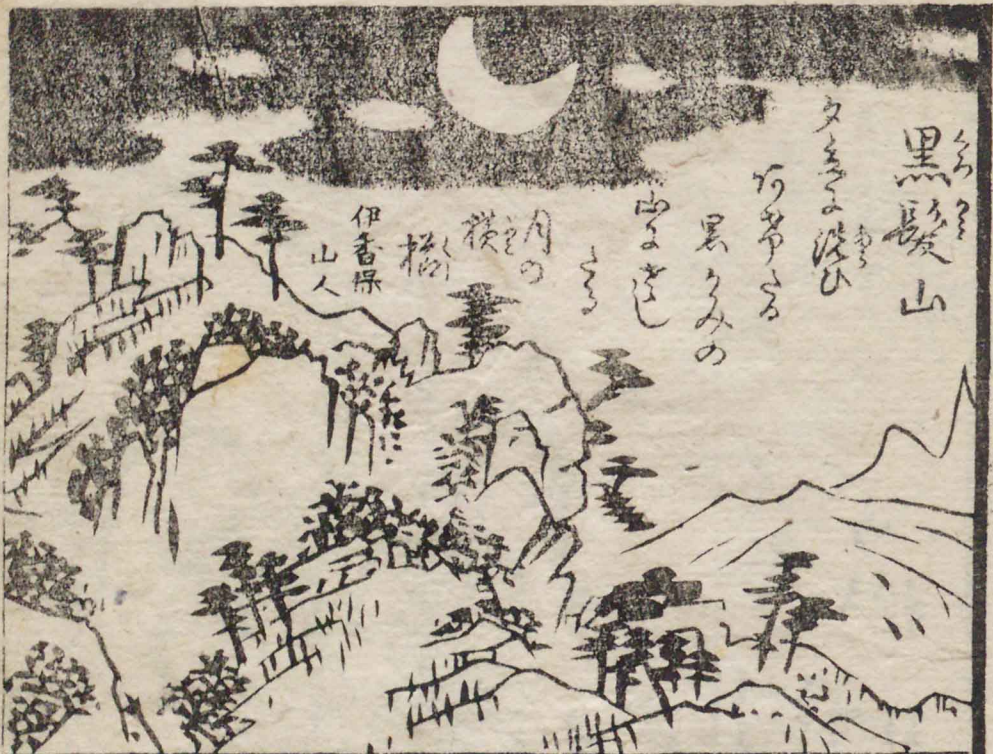 黒髪山
夕だちに洗ひ
あげたる
黒かみの
山にさし
たる
月の
横
櫛
伊香保
山人